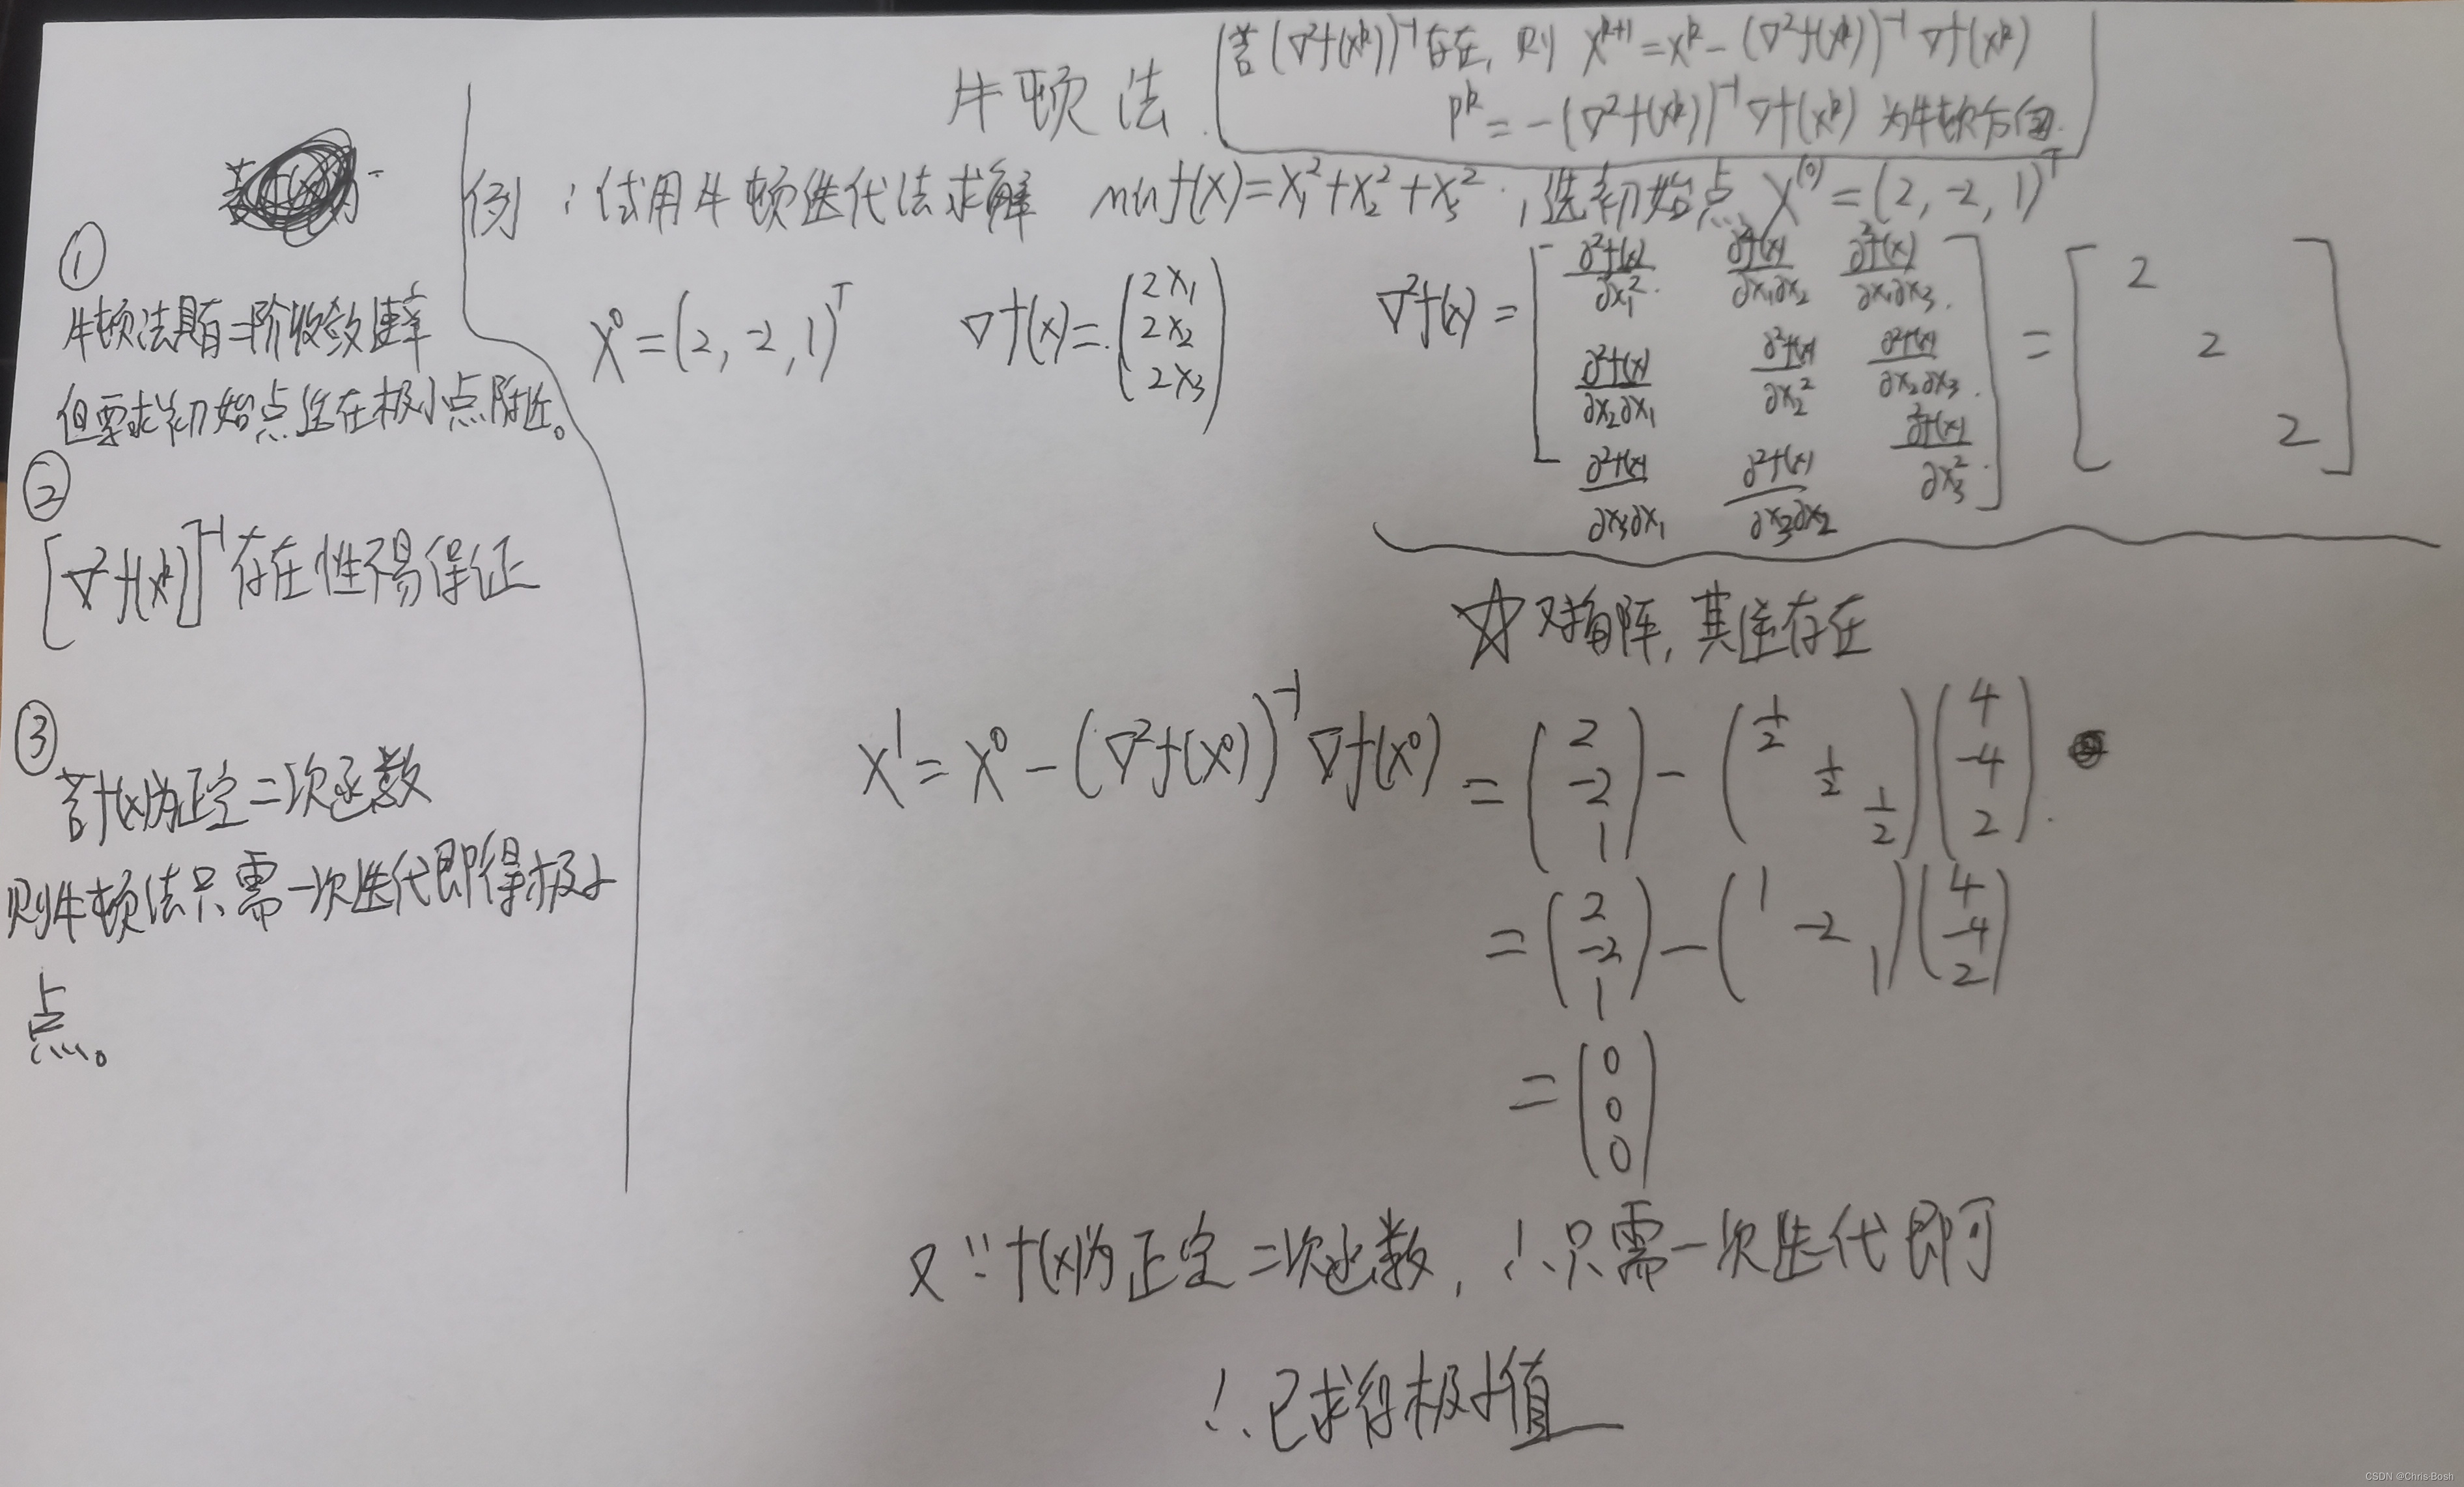 牛顿法
若(∇²f(x^k))⁻¹存在, 则 x^{k+1} = x^k - (∇²f(x^k))⁻¹ ∇f(x^k)
p^k = -(∇²f(x^k))⁻¹ ∇f(x^k) 为牛顿方向.
①
牛顿法具有二阶收敛速率
但要求初始点选在极小点附近。
②
[∇²f(x^k)]⁻¹存在性不易保证
③
若f(x)为正定二次函数
则牛顿法只需一次迭代即得极小
点。
例: 试用牛顿迭代法求解 min f(x) = x₁² + x₂² + x₃², 选初始点 X^(0) = (2, -2, 1)^T
X⁰ = (2, -2, 1)^T ∇f(x) = (2x₁ 2x₂ 2x₃) ∇²f(x) = [∂²f(x)/∂x₁² ∂²f(x)/∂x₁∂x₂ ∂²f(x)/∂x₁∂x₃ ∂²f(x)/∂x₂∂x₁ ∂²f(x)/∂x₂² ∂²f(x)/∂x₂∂x₃ ∂²f(x)/∂x₃∂x₁ ∂²f(x)/∂x₃∂x₂ ∂²f(x)/∂x₃²] = [2 2 2]
☆对角阵, 其逆存在
X¹ = X⁰ - (∇²f(X⁰))⁻¹ ∇f(X⁰) = (2 -2 1) - (1/2 1/2 1/2)(4 -4 2).
= (2 -2 1) - (1 -2 1)(4 -4 2)
= (0 0 0)
又∵f(x)为正定二次函数, ∴只需一次迭代即可
∴已求得极小值
CSDN @Chris·Bosh